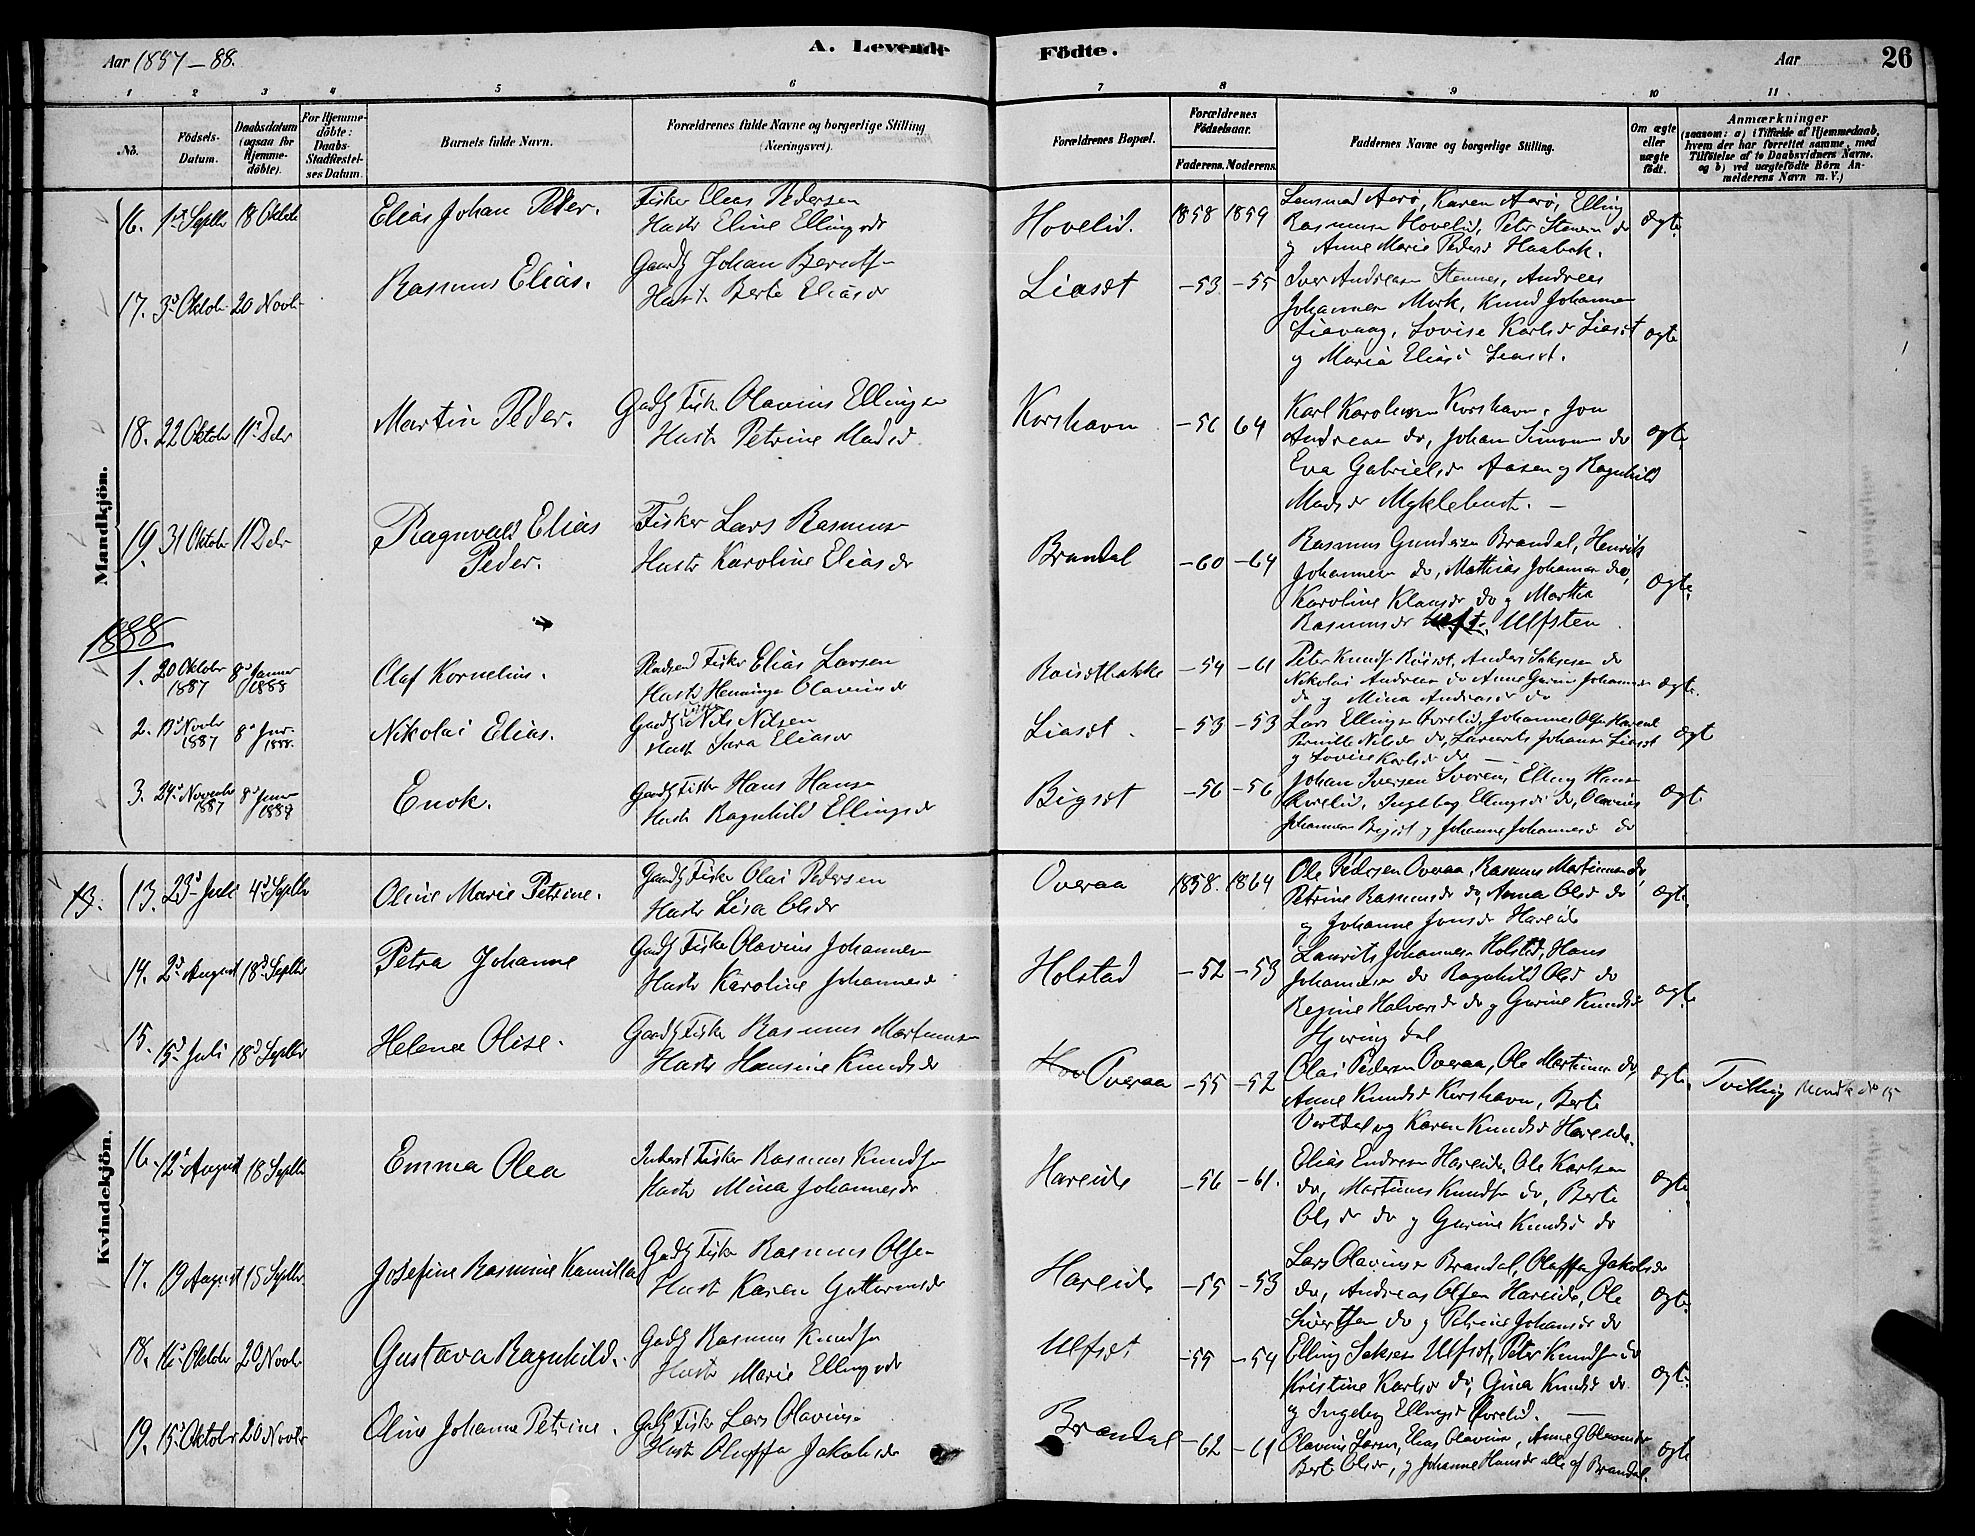 Aar 1887-88.
A. Levende Födte.
Aar
26
1 2 3 4 5 6 7 8 9 10 11
No.
Födsels-Datum.
Daabsdatum (ogsaa for Hjemme-döbte).
For Hjemme-döbte: Daabs-Stadfæstel-ses Datum.
Barnets fulde Navn.
Forældrenes fulde Navne og borgerlige Stilling (Næringsvei).
Forældrenes Bopæl.
Forældrenes Födselsaar.
Faderens. Moderens.
Faddernes Navne og borgerlige Stilling.
Om ægte eller uægte födt.
Anmærkninger
(saasom: a) i Tilfælde af Hjemmedaab, hvem der har forrettet samme, med Tilföielse af to Daabsvidners Navne, og b) ved uægtefödte Börn An-melderens Navn m. V.)
Mandkjön.
16. 18 Oktobr Elias Johan Peder. Fisker Elias Pedersen
Hustr Eline Ellingsdr
Hovelid. 1858 1859 Lensmad Aarø, Karen Aarø, Elling
Rasmusen Hovelid, Peter
og Anne Marie Pedersd
ægte
17. 3d Oktobr 20 Novbr Rasmus Elias. Gaardb Johan Berntsn
Hustr Berte Eliasdr
Liaset -53 -55 Iver Andreasen Stennes, Andreas
Johannesen Mork, Knud Johannesen
Liavaag, Lovise Karlsdr Liaset
og Maria Eliasd Liaset.
ægte
18. 22 Oktobr 11 Debr Martin Peder. Gaardb Fisker Olavius Ellingsen
Hustr Petrine Madsd.
Korshavn -56 64 Karl Karolusen Korshavn, Jon
Andreasen do, Johan Simonsen do
Eva Gabrielsdr Aasen og Ragnhild
Madsdr Myklebust. -
ægte
19. 31 Oktobr 11 Debr Ragnvald Elias
Peder.
Fisker Lars Rasmusen
Hustr Karoline Eliasdr
Brandal -60 -64 Rasmus Gundersen Brandal, Henrik
Johannesen do, Mathias Johannesen do,
Karoline Klausdr do og Martha
Rasmusdr Ulfsten
ægte.
1888
1. 20 Oktobr 1887 8d Januar 1888 Olaf Kornelius. Pladsend Fisker Elias Larsen
Hustr Henninga Olaviusdr
-54 -61 Peter Knuds Røiset, Anders do
Nikolai Andreasen do Anne Gurine Johannesdr
do og Mina Andreasdr do
ægte.
2. 13 Novbr 1887 8d Jnr. 1888. Nikolai Elias. Gaardb Nils Nilsen
Hustr Sara Eliasdr
Liaset. -53 -53 Lars Ellingsen Hovelid, Johannes Olsen
Pernille Nilsdr do, Laurits Johansen Liaset
og Lovise Karlsdr do -
ægte
3. 24d Novembr 1887 8d Jnr 1888 Enok. Gaardb Fisker Hans Hansen
Hustr Ragnhild Ellingsdr
Bigset -56 -56 Johan Iversen Elling Hansen
Ingeborg Ellingsdr do, Olavius
Johannesen Bigset og Johanne Johannesdr do
ægte.
Kvindekjön.
13. 13. 23d Juli 4d Septbr Oline Marie Petrine. Gaardb Fisker Olai Pedersen
Hustr Lisa Olsdr
Overaa 1858. 1864 Ole Pedersen Overaa, Rasmus Martinusen do,
Petrine Rasmusdr do, Anna Olsdr do
og Johanne Jonsdr Hareide
ægte.
14. 2d August 18d Septbr Petra Johanne Gaardb Fisker Olavius Johannesen
Hustr Karoline Johannesdr
Holstad -52 -53 Laurits Johannesen Holstad, Hans
Johannesen do Ragnhild Olsd do
Regine Halvorsdr do og Gurine Knudsdr
Hjöringdal
ægte
15. 15d Juli 18d Septbr Helena Olise. Gaardb Fisker Rasmus Martinusen
Hustr Hansine Knudsdr
Overaa -55 -52 Olai Pedersen Overaa, Ole Martinusen do,
Anne Knudsd Korshavn, Berte
Vartdal og Karen Knudsd Hareide.
ægte. Tvilling Mandk. No 15
16. 12d August 18 Septbr Emma Olea Inderst Fisker Rasmus Knudsen
Hustr Mina Johannesdr
Hareide -56 -61. Elias Endresen Hareide, Ole Karlsen
do, Martinus Knudsen do, Berte
Olsdr do og Gurine Knudsd do
ægte.
17. 19 August 18 Septbr Josefine Rasmine Kamilla Gaardb Fisker Rasmus Olsen
Hustr Karen Guttormsdr
Hareide -55 -53 Lars Olaviusen Brandal, Oluffa Jakobsdr
do, Andreas Olsen Hareide, Ole
Sivertsen do og Petrine Johansdr do
ægte.
18. 16d Oktobr 20 Novbr Gustava Ragnhild. Gaardb Rasmus Knudsen
Hustr Marie Ellingsdr
Ulfset -55 -54 Elling Ulfset, Peter Knudsen do
Kristine Karlsdr do, Gina Knudsd do
og Ingeborg Ellingsd -
ægte.
19. 15d Oktobr 20 Novbr Oline Johanne Petrine. Gaardb Fisker Lars Olaviusen
Hustr Oluffa Jakobsdr
Brandal -62 -61 Olavius Larsen, Elias Olaviusen, Anne G Olaviusdr
Berte Olsdr, og Johanne Hansdr alle af Brandal.
ægte